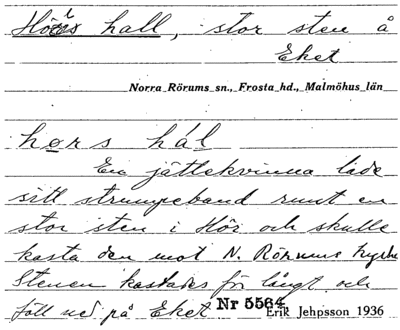 Hörs hall, stor sten å
Eket
Norra Rörums sn., Frosta hd., Malmöhus län
hørs hál
En jättekvinna lade
sitt strumpeband runt en
stor sten i Hör och skulle
kasta den mot N. Rörums kyrka
Stenen kastades för långt och
föll ned på Eket
Nr 5564
Erik Jehpsson 1936